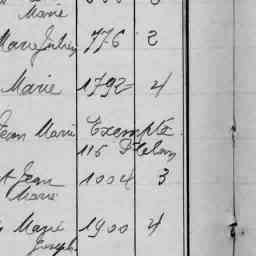 Marie
Marie Julien 776 2
Marie 1792 4
Jean Marie Exempté
115 Pt
Jean 1004 3
Marie
Marie 1900 4
Joseph